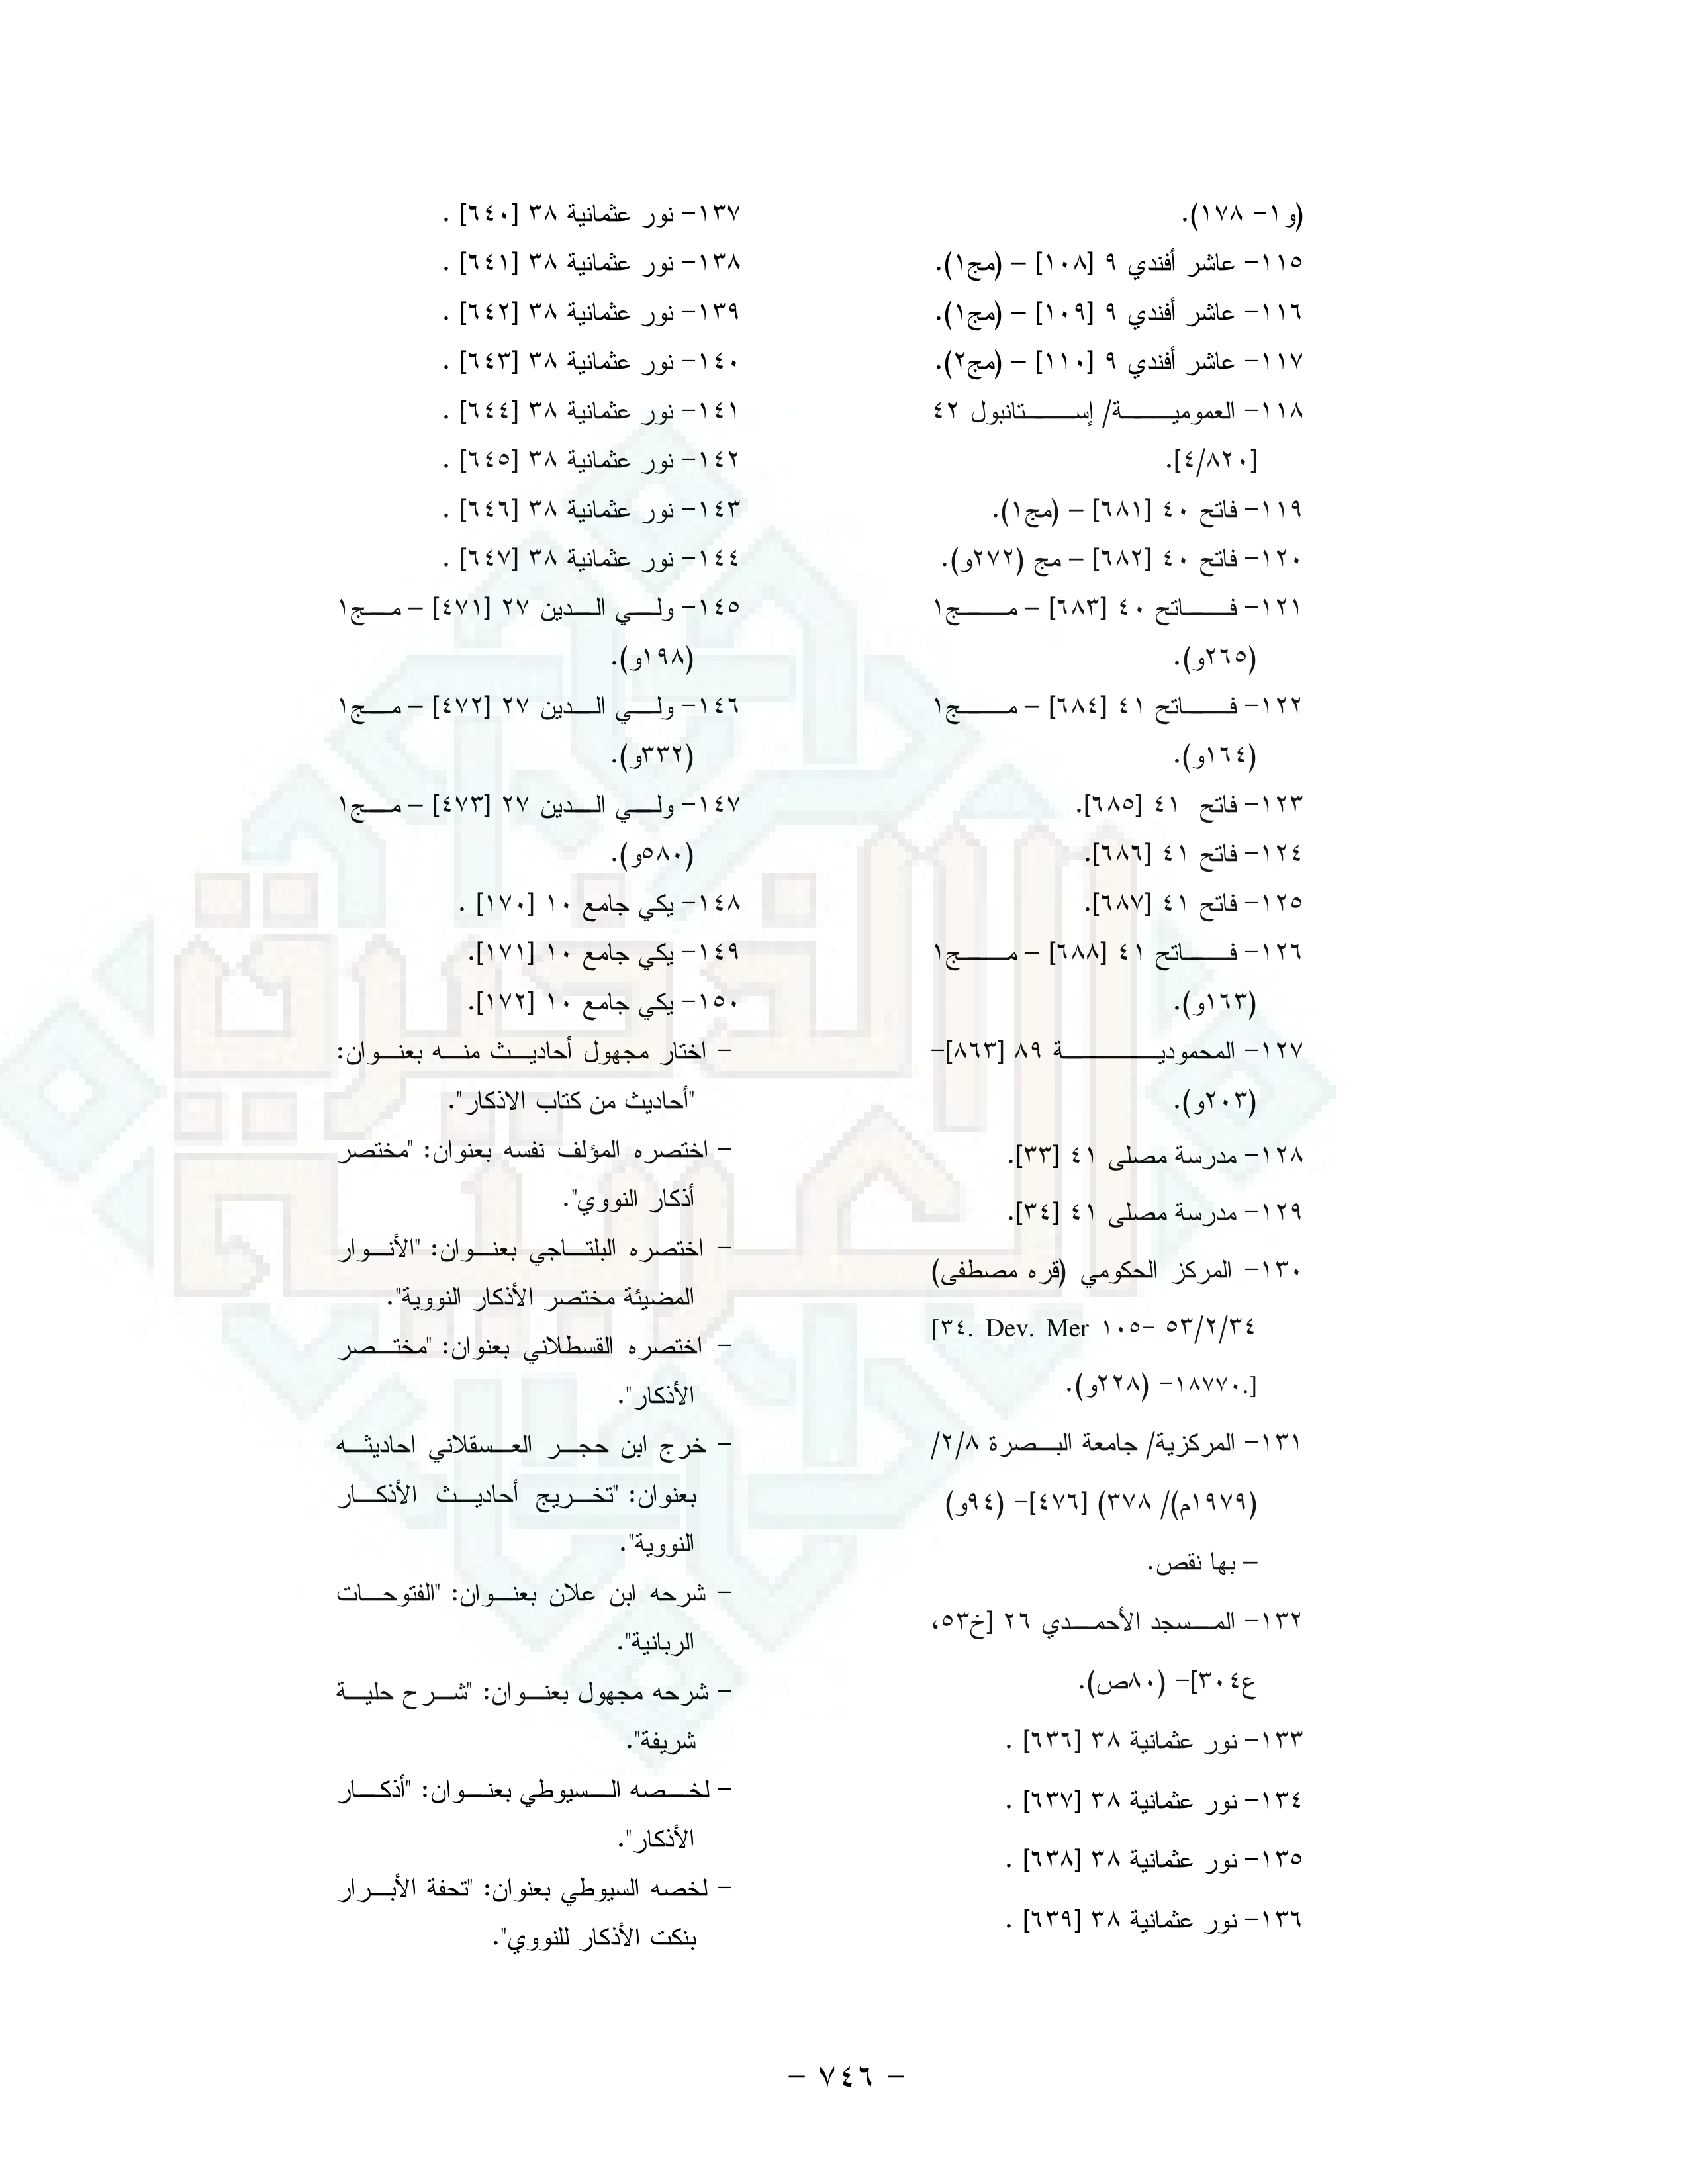 (و١- ١٧٨).
١١٥- عاشر أفندي ٩ [١٠٨] – (مج١).
١١٦- عاشر أفندي ٩ [١٠٩] – (مج١).
١١٧- عاشر أفندي ٩ [١١٠] – (مج٢).
١١٨- العمومية/ إستانبول ٤٢
[٤/٨٢٠].
١١٩- فاتح ٤٠ [٦٨١] – (مج١).
١٢٠- فاتح ٤٠ [٦٨٢] – مج (٢٧٢و).
١٢١- فاتح ٤٠ [٦٨٣] – مج١
(٢٦٥و).
١٢٢- فاتح ٤١ [٦٨٤] – مج١
(١٦٤و).
١٢٣- فاتح ٤١ [٦٨٥].
١٢٤- فاتح ٤١ [٦٨٦].
١٢٥- فاتح ٤١ [٦٨٧].
١٢٦- فاتح ٤١ [٦٨٨] – مج١
(١٦٣و).
١٢٧- المحمودية ٨٩ [٨٦٣]-
(٢٠٣و).
١٢٨- مدرسة مصلى ٤١ [٣٣].
١٢٩- مدرسة مصلى ٤١ [٣٤].
١٣٠- المركز الحكومي (قره مصطفى)
٥٣/٢/٣٤ -١٠٥ Dev. Mer .٣٤]
[.١٨٧٧٠- (٢٢٨و).
١٣١- المركزية/ جامعة البصرة ٢/٨/
(١٩٧٩م)/ ٣٧٨) [٤٧٦]- (٩٤و)
– بها نقص.
١٣٢- المسجد الأحمدي ٢٦ [خ٥٣،
ع٣٠٤]- (٨٠ص).
١٣٣- نور عثمانية ٣٨ [٦٣٦] .
١٣٤- نور عثمانية ٣٨ [٦٣٧] .
١٣٥- نور عثمانية ٣٨ [٦٣٨] .
١٣٦- نور عثمانية ٣٨ [٦٣٩] .
١٣٧- نور عثمانية ٣٨ [٦٤٠] .
١٣٨- نور عثمانية ٣٨ [٦٤١] .
١٣٩- نور عثمانية ٣٨ [٦٤٢] .
١٤٠- نور عثمانية ٣٨ [٦٤٣] .
١٤١- نور عثمانية ٣٨ [٦٤٤] .
١٤٢- نور عثمانية ٣٨ [٦٤٥] .
١٤٣- نور عثمانية ٣٨ [٦٤٦] .
١٤٤- نور عثمانية ٣٨ [٦٤٧] .
١٤٥- ولي الدين ٢٧ [٤٧١] – مج١
(١٩٨و).
١٤٦- ولي الدين ٢٧ [٤٧٢] – مج١
(٣٣٢و).
١٤٧- ولي الدين ٢٧ [٤٧٣] – مج١
(٥٨٠و).
١٤٨- يكي جامع ١٠ [١٧٠] .
١٤٩- يكي جامع ١٠ [١٧١].
١٥٠- يكي جامع ١٠ [١٧٢].
- اختار مجهول أحاديث منه بعنوان:
"أحاديث من كتاب الاذكار".
- اختصره المؤلف نفسه بعنوان: "مختصر
أذكار النووي".
- اختصره البلتاجي بعنوان: "الأنوار
المضيئة مختصر الأذكار النووية".
- اختصره القسطلاني بعنوان: "مختصر
الأذكار".
- خرج ابن حجر العسقلاني احاديثه
بعنوان: "تخريج أحاديث الأذكار
النووية".
- شرحه ابن علان بعنوان: "الفتوحات
الربانية".
- شرحه مجهول بعنوان: "شرح حلية
شريفة".
- لخصه السيوطي بعنوان: "أذكار
الأذكار".
- لخصه السيوطي بعنوان: "تحفة الأبرار
بنكت الأذكار للنووي".
- ٧٤٦ -
الذخيرة
العربية